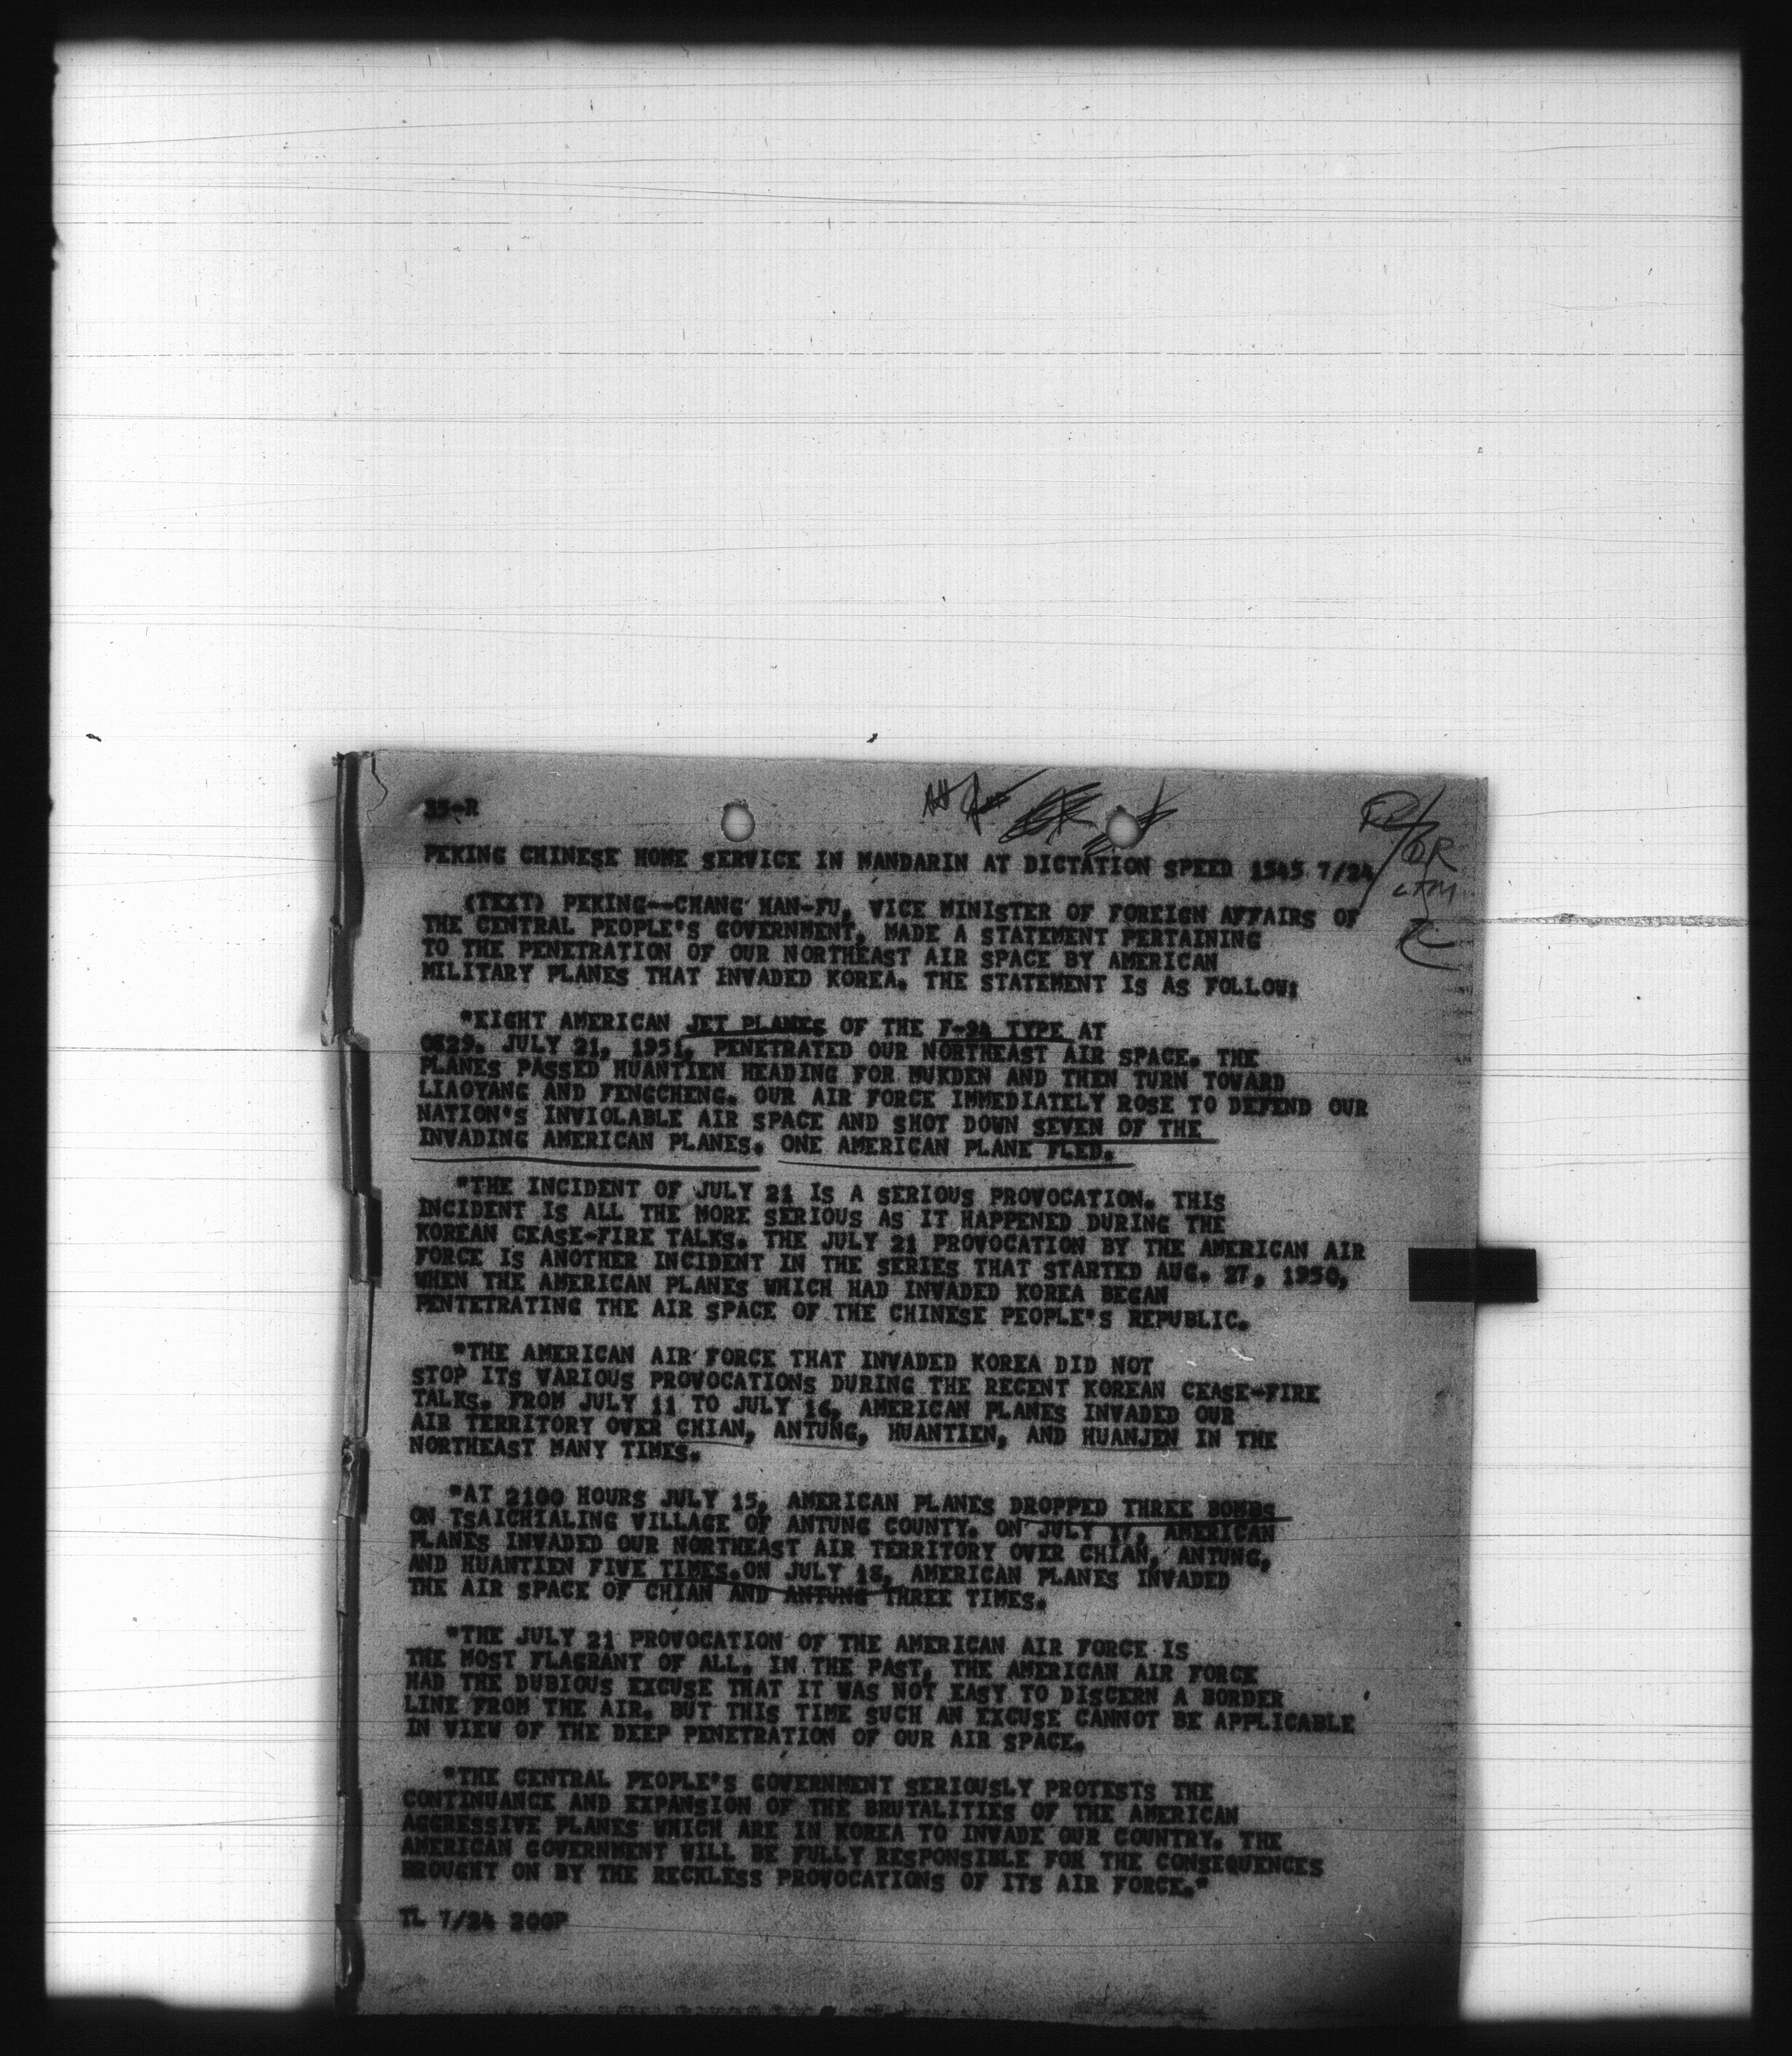 35-R
PEKING CHINESE HOME SERVICE IN MANDARIN AT DICTATION SPEED 1545 7/24
(TEXT) PEKING--CHANG HAN-FU, VICE MINISTER OF FOREIGN AFFAIRS OF
THE CENTRAL PEOPLE'S GOVERNMENT, MADE A STATEMENT PERTAINING
TO THE PENETRATION OF OUR NORTHEAST AIR SPACE BY AMERICAN
MILITARY PLANES THAT INVADED KOREA. THE STATEMENT IS AS FOLLOW:
"EIGHT AMERICAN JET PLANES OF THE F-94 TYPE AT
0829. JULY 21, 1951, PENETRATED OUR NORTHEAST AIR SPACE. THE
PLANES PASSED HUANTIEN HEADING FOR MUKDEN AND THEN TURN TOWARD
LIAOYANG AND FENGCHENG. OUR AIR FORCE IMMEDIATELY ROSE TO DEFEND OUR
NATION'S INVIOLABLE AIR SPACE AND SHOT DOWN SEVEN OF THE
INVADING AMERICAN PLANES. ONE AMERICAN PLANE FLED.
"THE INCIDENT OF JULY 21 IS A SERIOUS PROVOCATION. THIS
INCIDENT IS ALL THE MORE SERIOUS AS IT HAPPENED DURING THE
KOREAN CEASE-FIRE TALKS. THE JULY 21 PROVOCATION BY THE AMERICAN AIR
FORCE IS ANOTHER INCIDENT IN THE SERIES THAT STARTED AUG. 27, 1950,
WHEN THE AMERICAN PLANES WHICH HAD INVADED KOREA BEGAN
PENTETRATING THE AIR SPACE OF THE CHINESE PEOPLE'S REPUBLIC.
"THE AMERICAN AIR FORCE THAT INVADED KOREA DID NOT
STOP ITS VARIOUS PROVOCATIONS DURING THE RECENT KOREAN CEASE-FIRE
TALKS. FROM JULY 11 TO JULY 16, AMERICAN PLANES INVADED OUR
AIR TERRITORY OVER CHIAN, ANTUNG, HUANTIEN, AND HUANJEN IN THE
NORTHEAST MANY TIMES.
"AT 2100 HOURS JULY 15, AMERICAN PLANES DROPPED THREE BOMBS
ON TSAICHIALING VILLAGE OF ANTUNG COUNTY. ON JULY 17, AMERICAN
PLANES INVADED OUR NORTHEAST AIR TERRITORY OVER CHIAN, ANTUNG,
AND HUANTIEN FIVE TIMES.ON JULY 18, AMERICAN PLANES INVADED
THE AIR SPACE OF CHIAN AND ANTUNG THREE TIMES.
"THE JULY 21 PROVOCATION OF THE AMERICAN AIR FORCE IS
THE MOST FLAGRANT OF ALL. IN THE PAST, THE AMERICAN AIR FORCE
HAD THE DUBIOUS EXCUSE THAT IT WAS NOT EASY TO DISCERN A BORDER
LINE FROM THE AIR. BUT THIS TIME SUCH AN EXCUSE CANNOT BE APPLICABLE
IN VIEW OF THE DEEP PENETRATION OF OUR AIR SPACE.
"THE CENTRAL PEOPLE'S GOVERNMENT SERIOUSLY PROTESTS THE
CONTINUANCE AND EXPANSION OF THE BRUTALITIES OF THE AMERICAN
AGGRESSIVE PLANES WHICH ARE IN KOREA TO INVADE OUR COUNTRY. THE
AMERICAN GOVERNMENT WILL BE FULLY RESPONSIBLE FOR THE CONSEQUENCES
BROUGHT ON BY THE RECKLESS PROVOCATIONS OF ITS AIR FORCE."
TL 7/24 200P